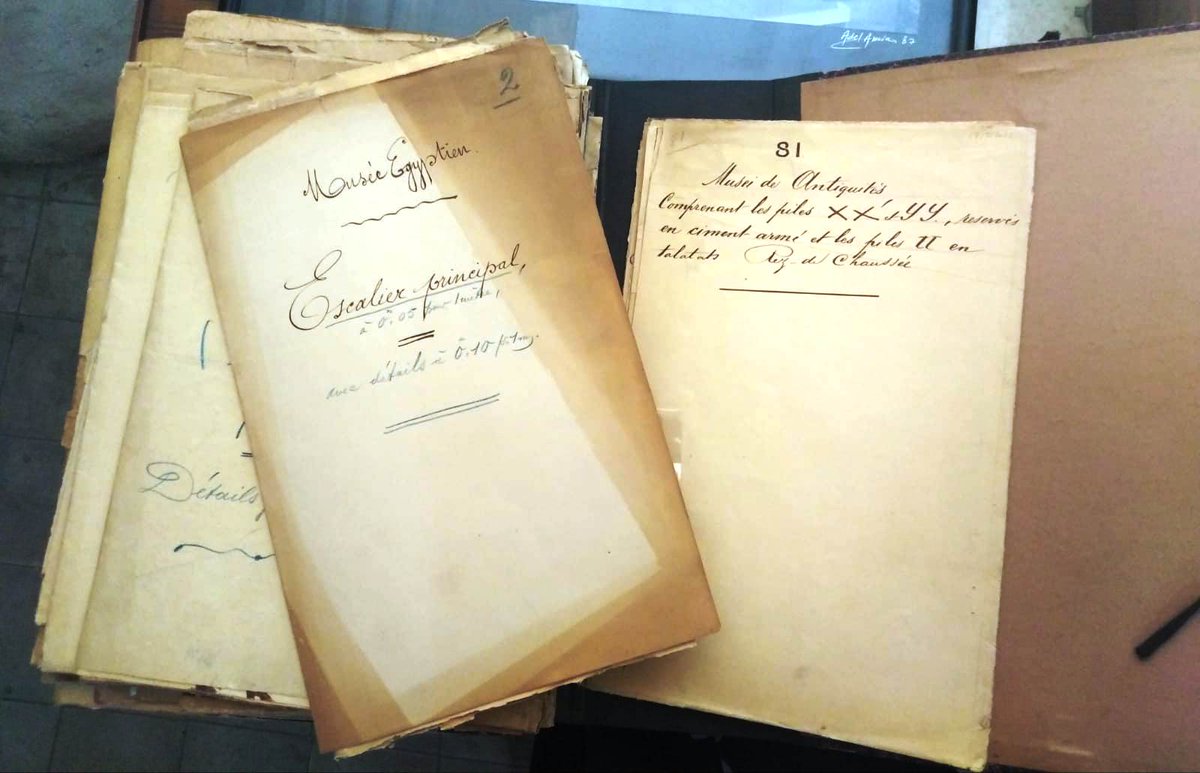 2
Musée Égyptien.
Escalier principal,
à 0,05 pour 1 mètre,
avec détails à 0,10
Détails
81
Musée de Antiquités
Comprenant les piles XX's YY., reservés
en ciment armé et les piles II en
talatats Rez-de Chaussée
Adel Amin 87